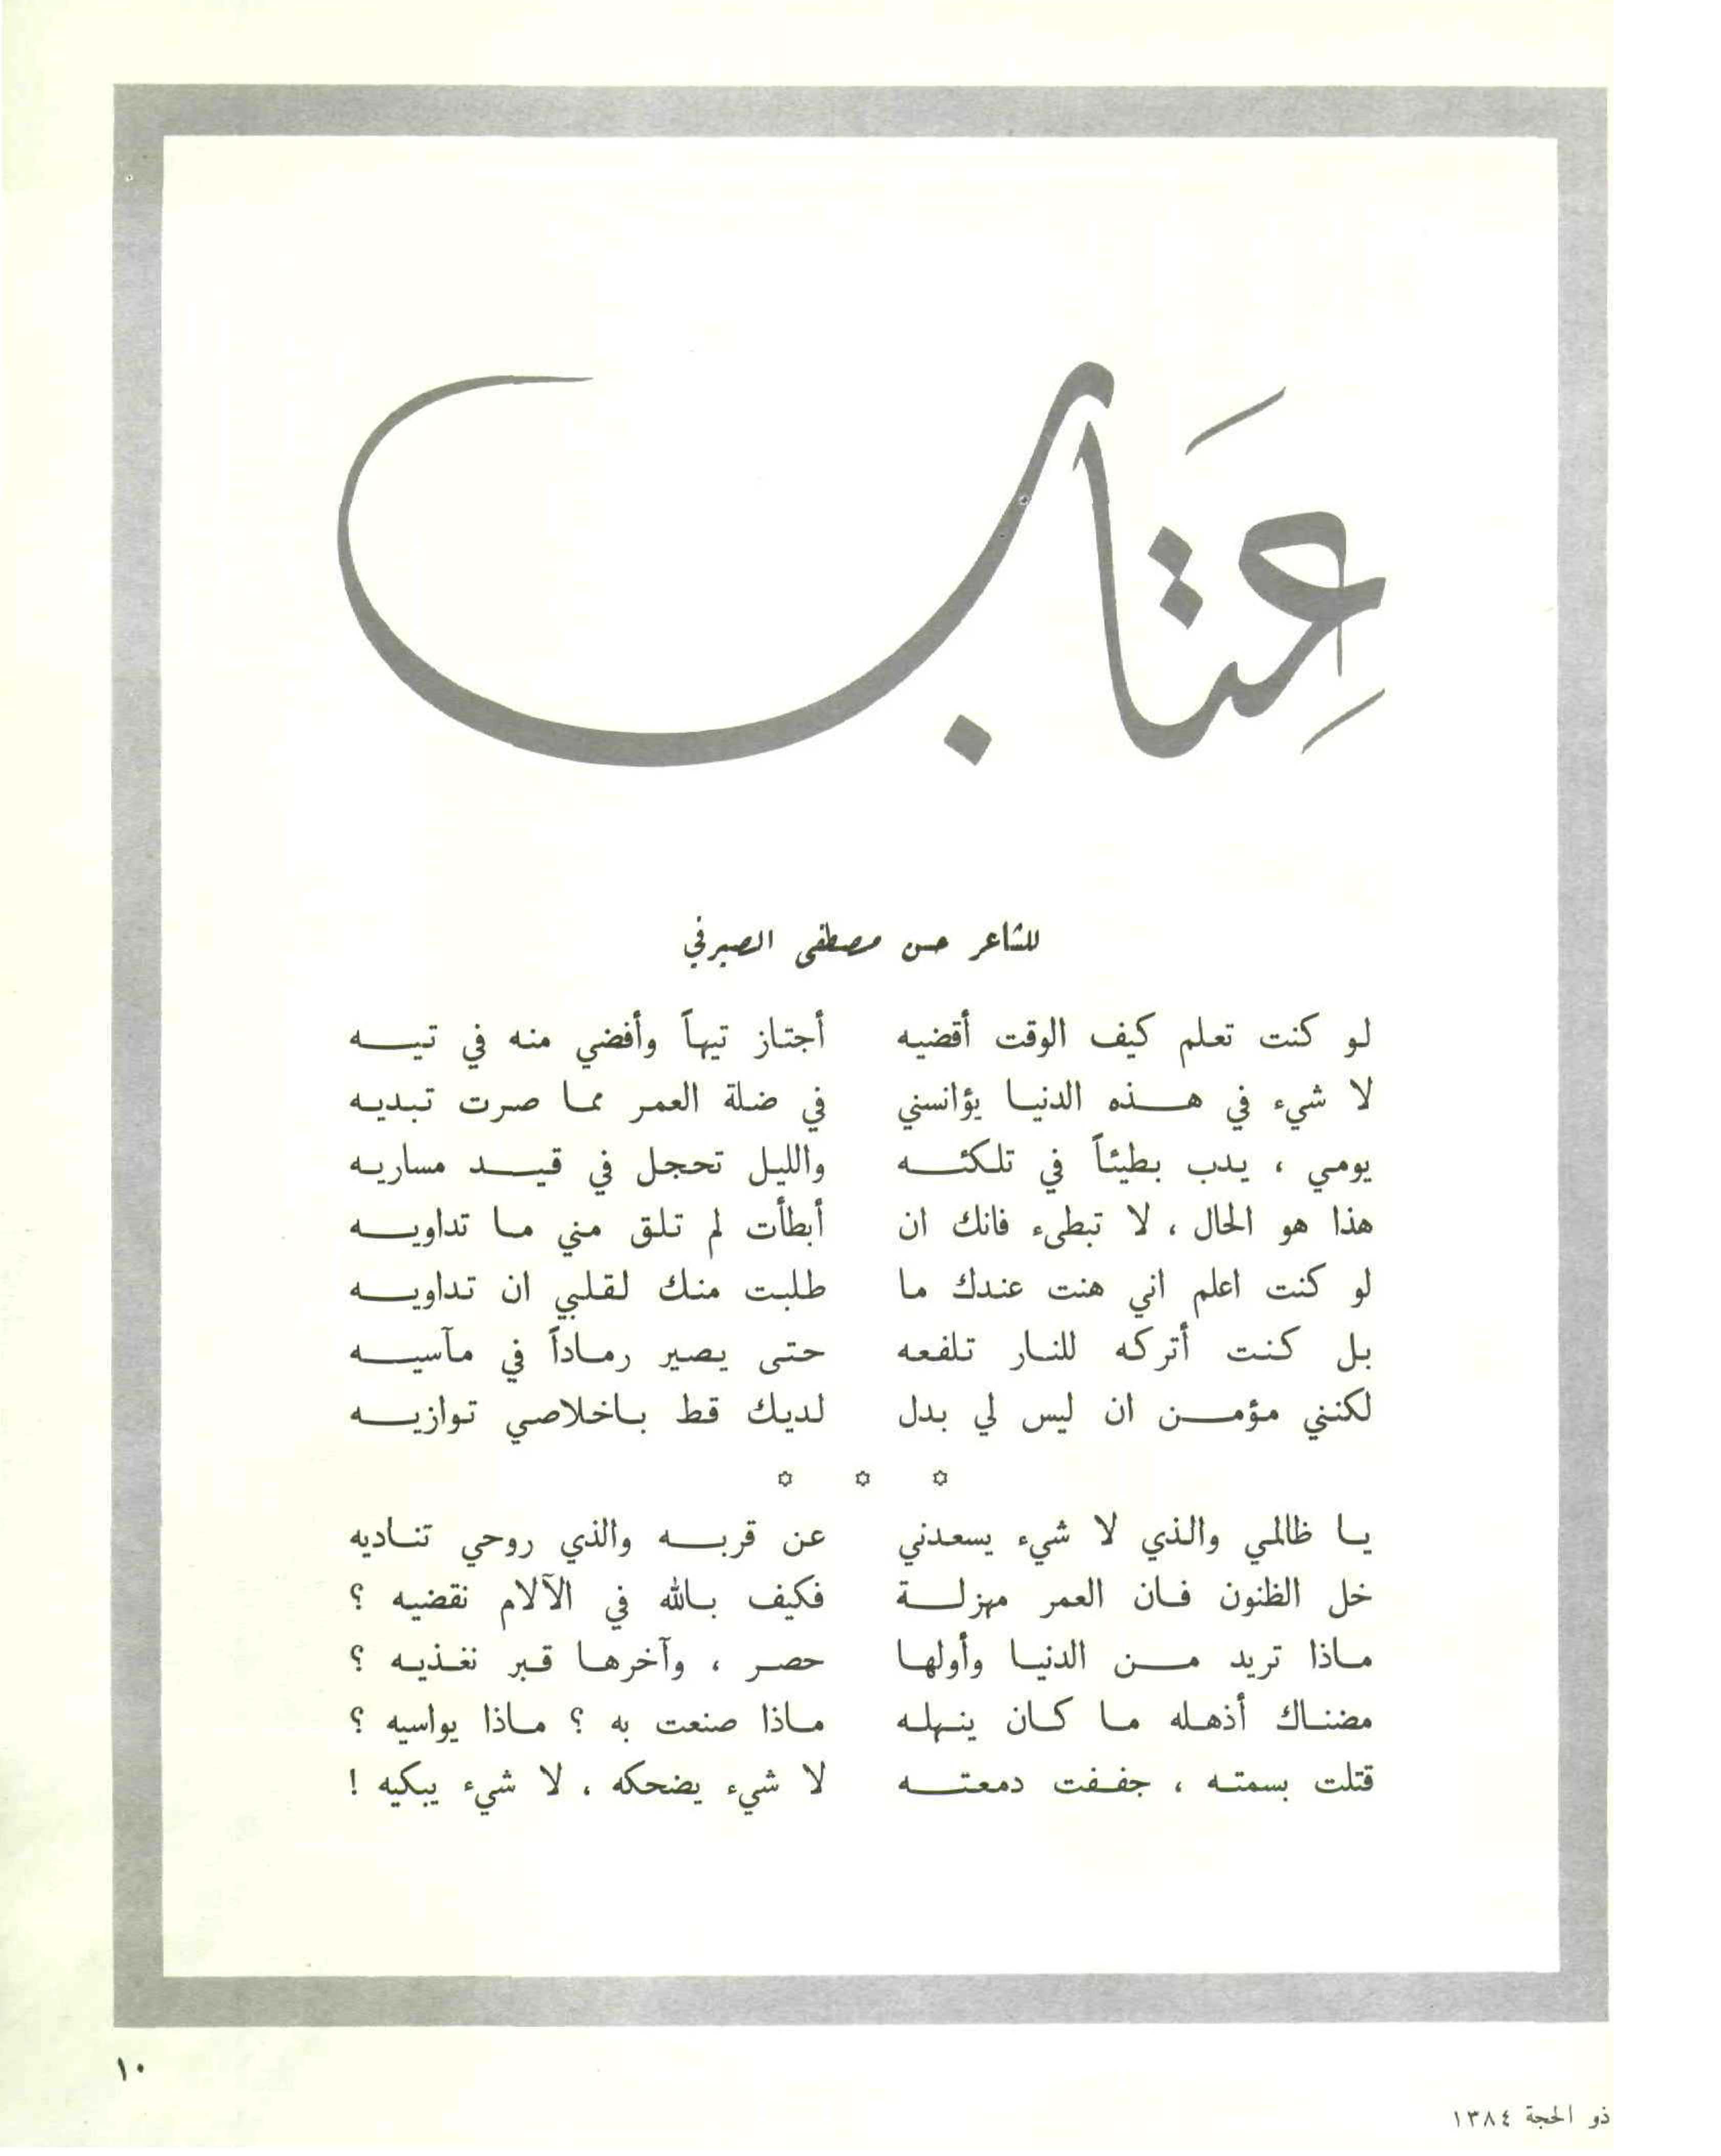 عِتَاب
للشاعر حسن مصطفى الصيرفي
لو كنت تعلم كيف الوقت أقضيه أجتاز تيهاً وأفضي منه في تيه
لا شيء في هذه الدنيا يؤانسني في ضلة العمر مما صرت تبديه
يومي ، يدب بطيئاً في تلكئه والليل تحجل في قيد مساريه
هذا هو الحال ، لا تبطىء فانك ان أبطأت لم تلق مني ما تداويه
لو كنت اعلم اني هنت عندك ما طلبت منك لقلبي ان تداويه
بل كنت أتركه للنار تلفعه حتى يصير رماداً في مآسيه
لكنني مؤمن ان ليس لي بدل لديك قط باخلاصي توازيه
✡ ✡ ✡
يا ظالمي والذي لا شيء يسعدني عن قربه والذي روحي تناديه
خل الظنون فان العمر مهزلة فكيف بالله في الآلام نقضيه ؟
ماذا تريد من الدنيا وأولها حصر ، وآخرها قبر نغذيه ؟
مضناك أذهله ما كان ينهله ماذا صنعت به ؟ ماذا يواسيه ؟
قتلت بسمته ، جففت دمعته لا شيء يضحكه ، لا شيء يبكيه !
١٠
ذو الحجة ١٣٨٤